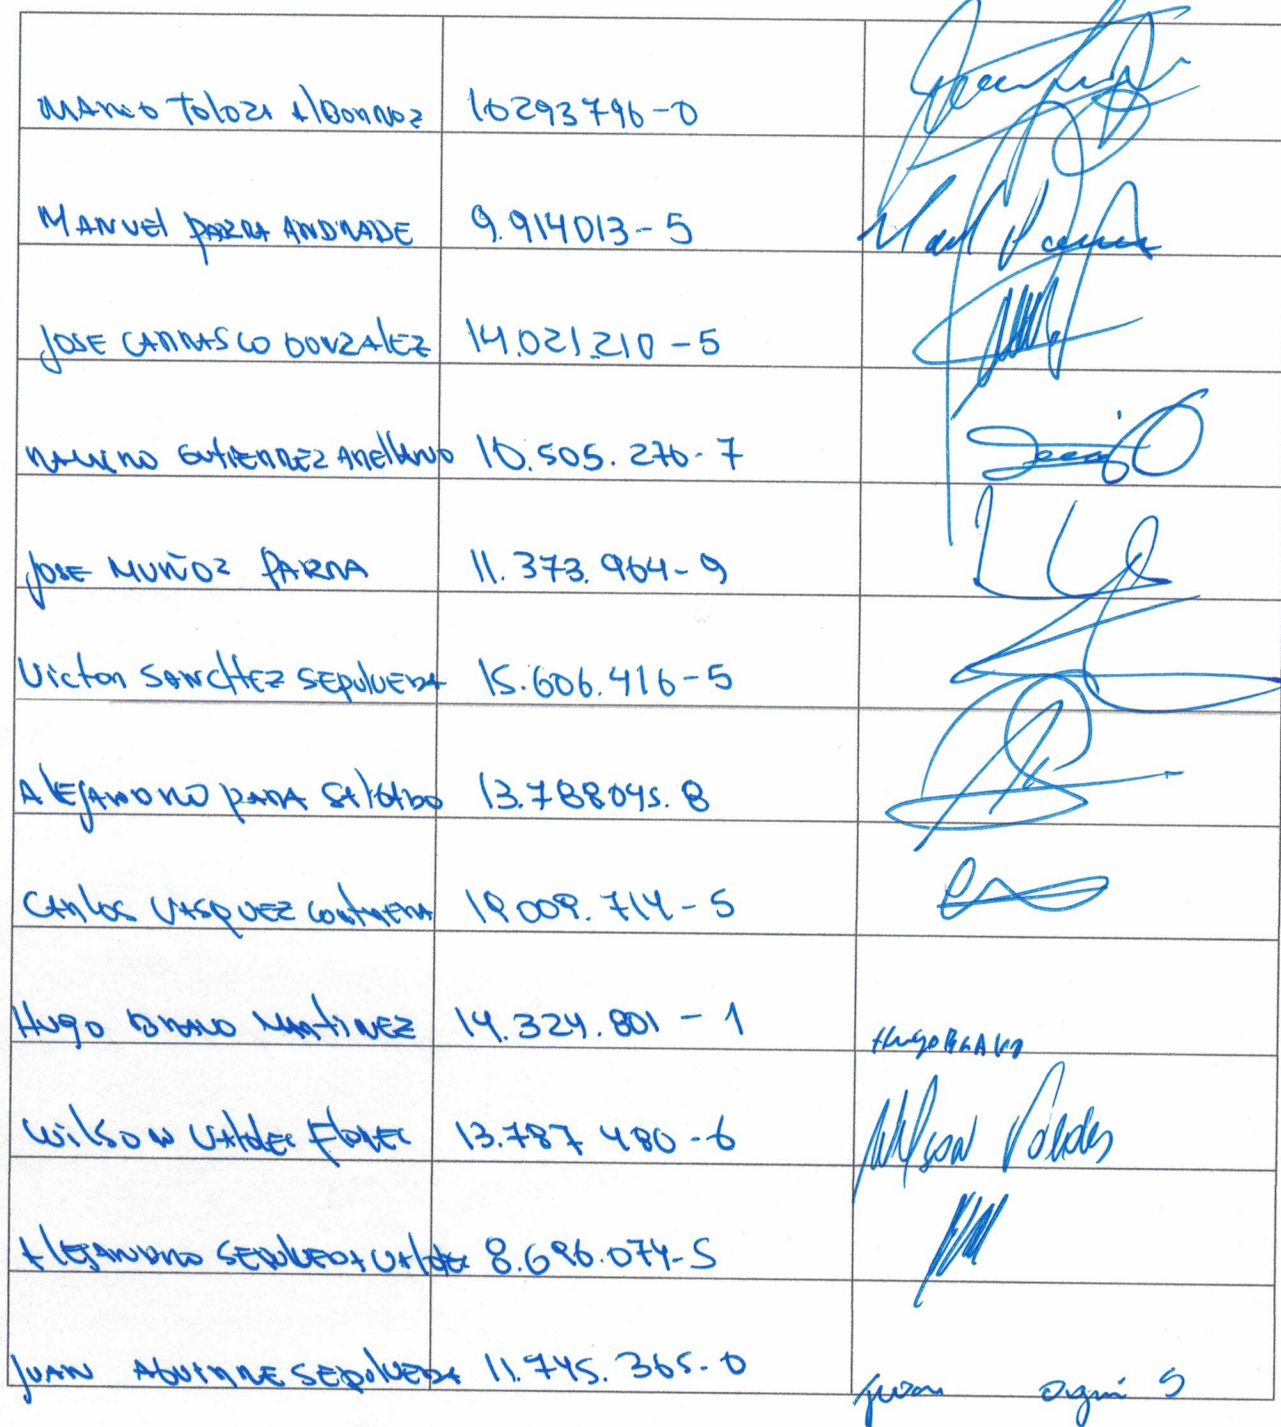 Marco Toloza Albornoz 10293796-0
Manuel Parra Andrade 9.914013-5
Jose Carrasco Gonzalez 14.021.210-5
Gutierrez Arellano 10.505.276-7
Jose Muñoz Parra 11.373.964-9
Victor Sanchez Sepulveda 15.606.416-5
Alejandro Parra 13.788045.8
Carlos Vasquez Contrera 19009.714-5
Hugo Bravo Martinez 14.324.801-1 Hugo BRAVO
Wilson Valdes Flores 13.787 480-6 Wilson Valdes
Alejandro Sepulveda Valdes 8.696.074-5
Juan Aguirre Sepulveda 11.745.365-0 Juan